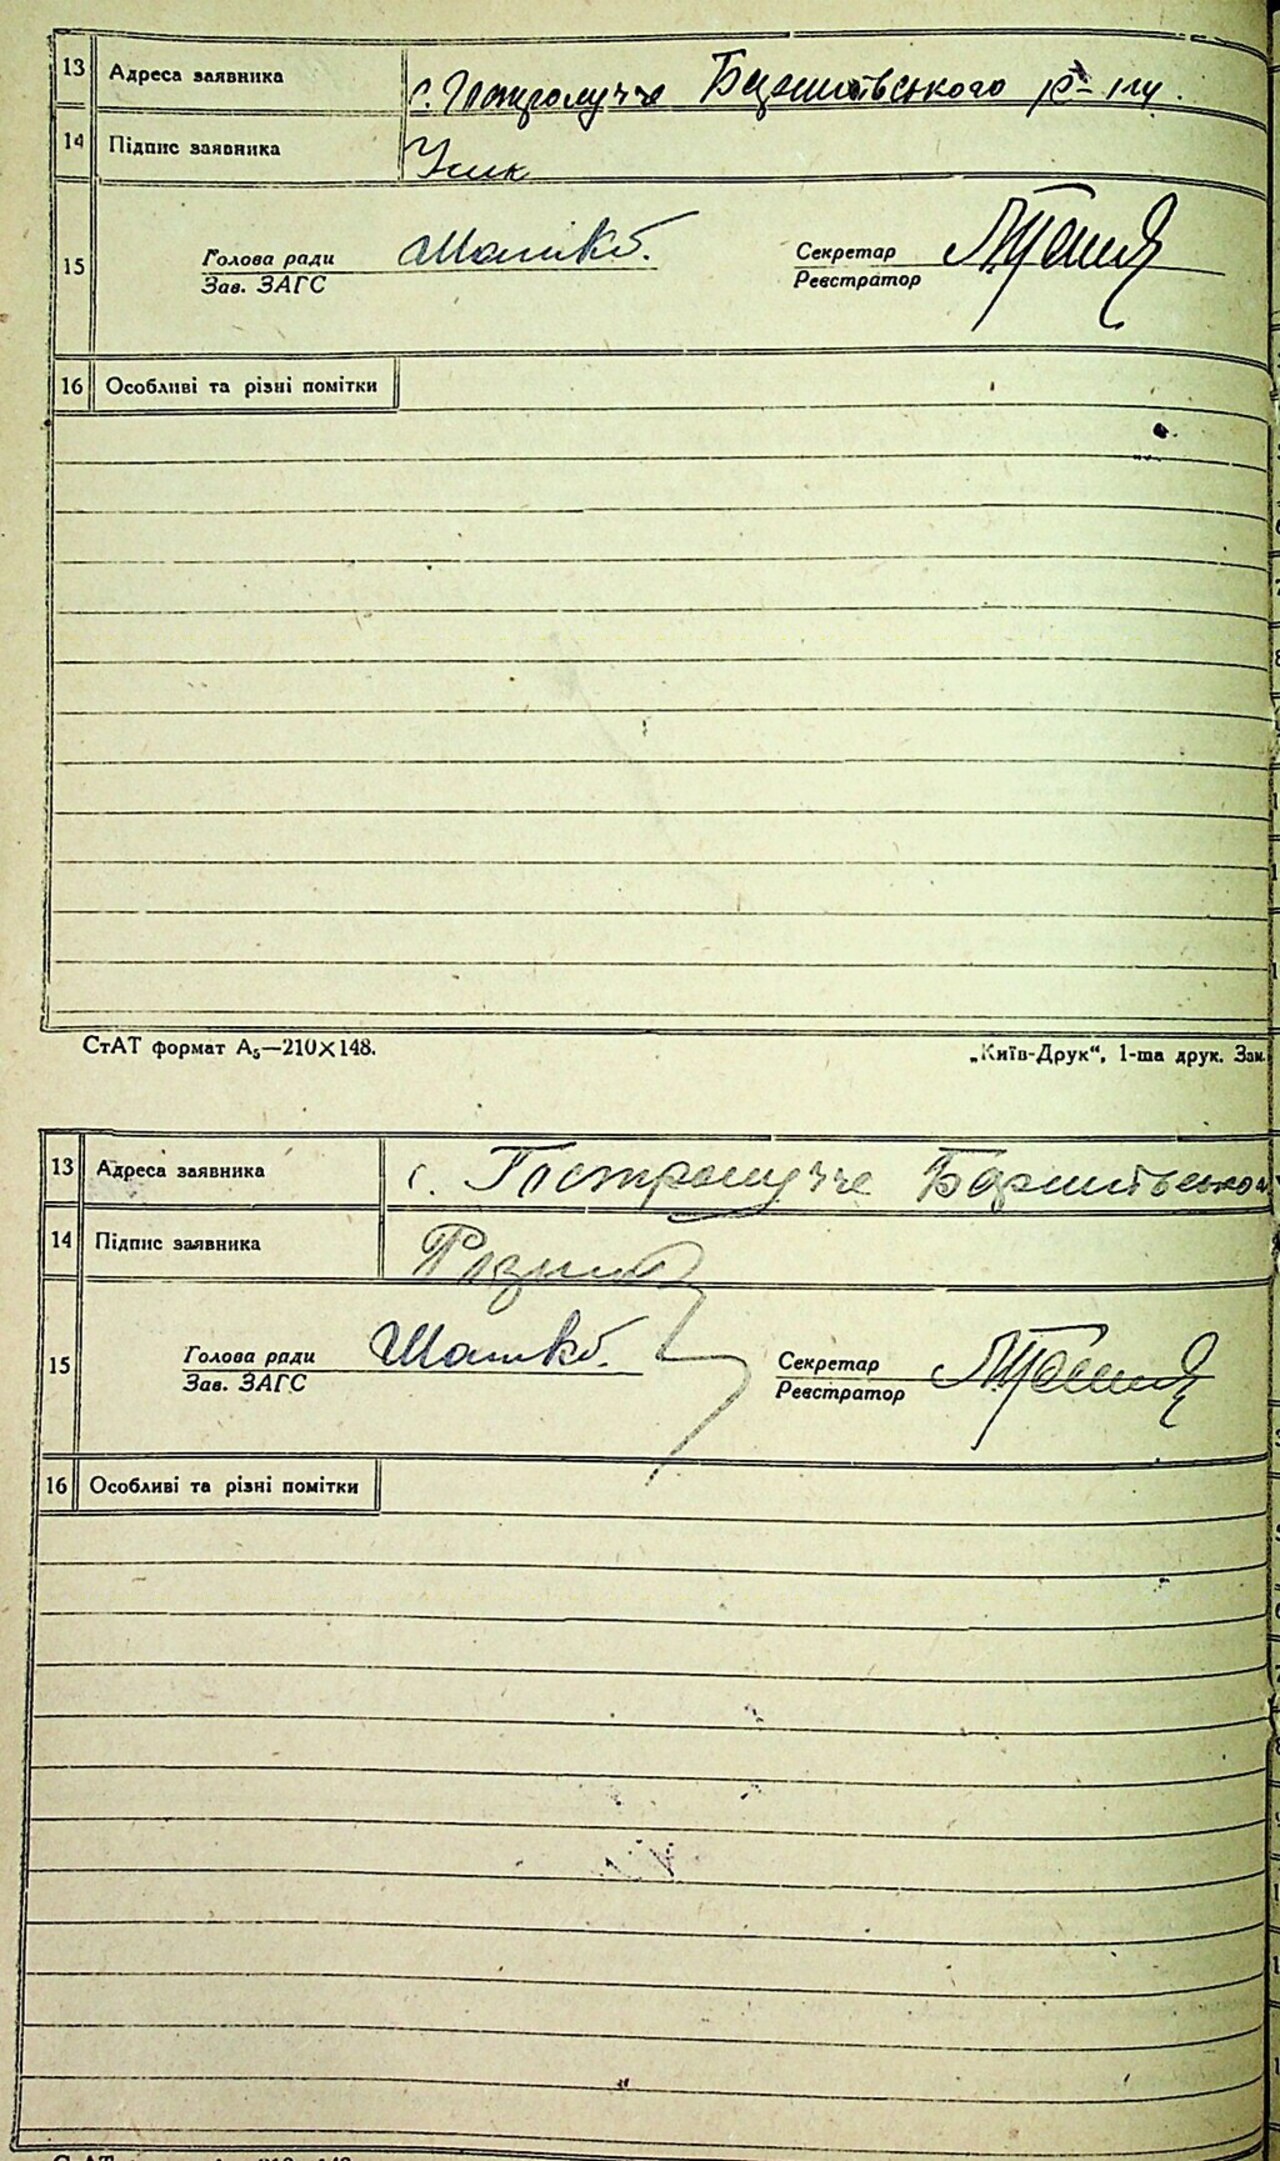 13 Адреса заявника с. Гостролуччє Баришівського р-ну.
14 Підпис заявника Усик
15 Голова ради Секретар
Зав. ЗАГС Реєстратор
16 Особливі та різні помітки
СтАТ формат А₅—210×148. „Київ-Друк“, 1-ша друк. Зам.
13 Адреса заявника с. Гостролуччє Баришівського
14 Підпис заявника
15 Голова ради Секретар
Зав. ЗАГС Реєстратор
16 Особливі та різні помітки